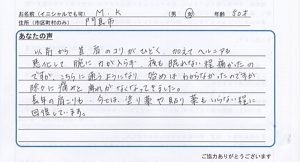 お名前（イニシャルでも可） M.K （男・女） 年齢 50才
住所（市区町村のみ） 門真市
あなたの声
以前から首肩のコリがひどく、加えてヘルニアも
悪化して腕に力が入らず、夜も眠れない程痛かったの
ですが、こちらに通うようになり、始めはわからなかったのですが
除々に痛みと痺れがなくなってきました。
長年の肩こりも、今では、塗り薬や貼り薬もいらない程に
回復しています。
ご協力ありがとうございます